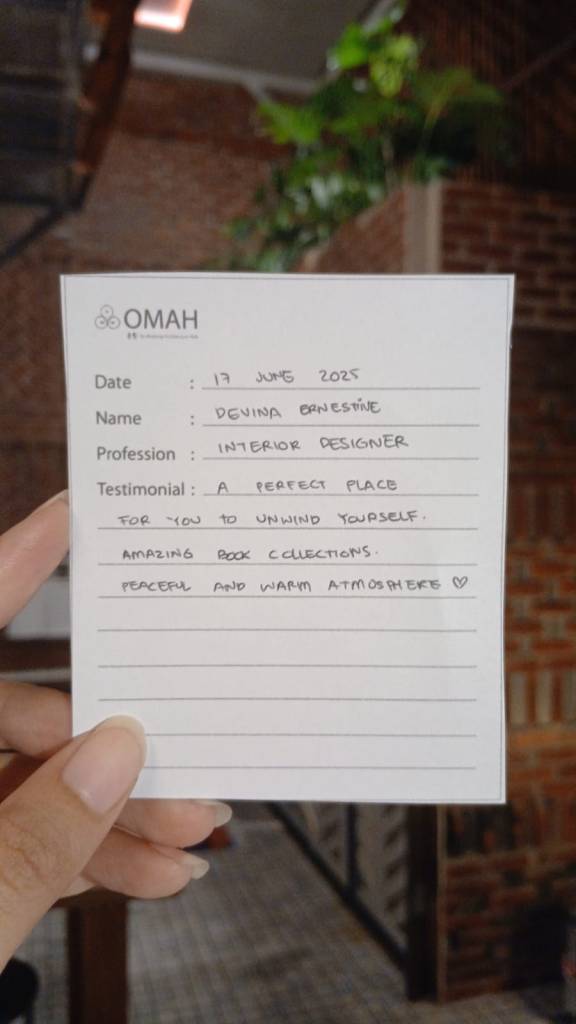 OMAH
Date : 17 JUNE 2025
Name : DEVINA ERNESTINE
Profession : INTERIOR DESIGNER
Testimonial : A PERFECT PLACE
FOR YOU TO UNWIND YOURSELF.
AMAZING BOOK COLLECTIONS.
PEACEFUL AND WARM ATMOSPHERE ♡